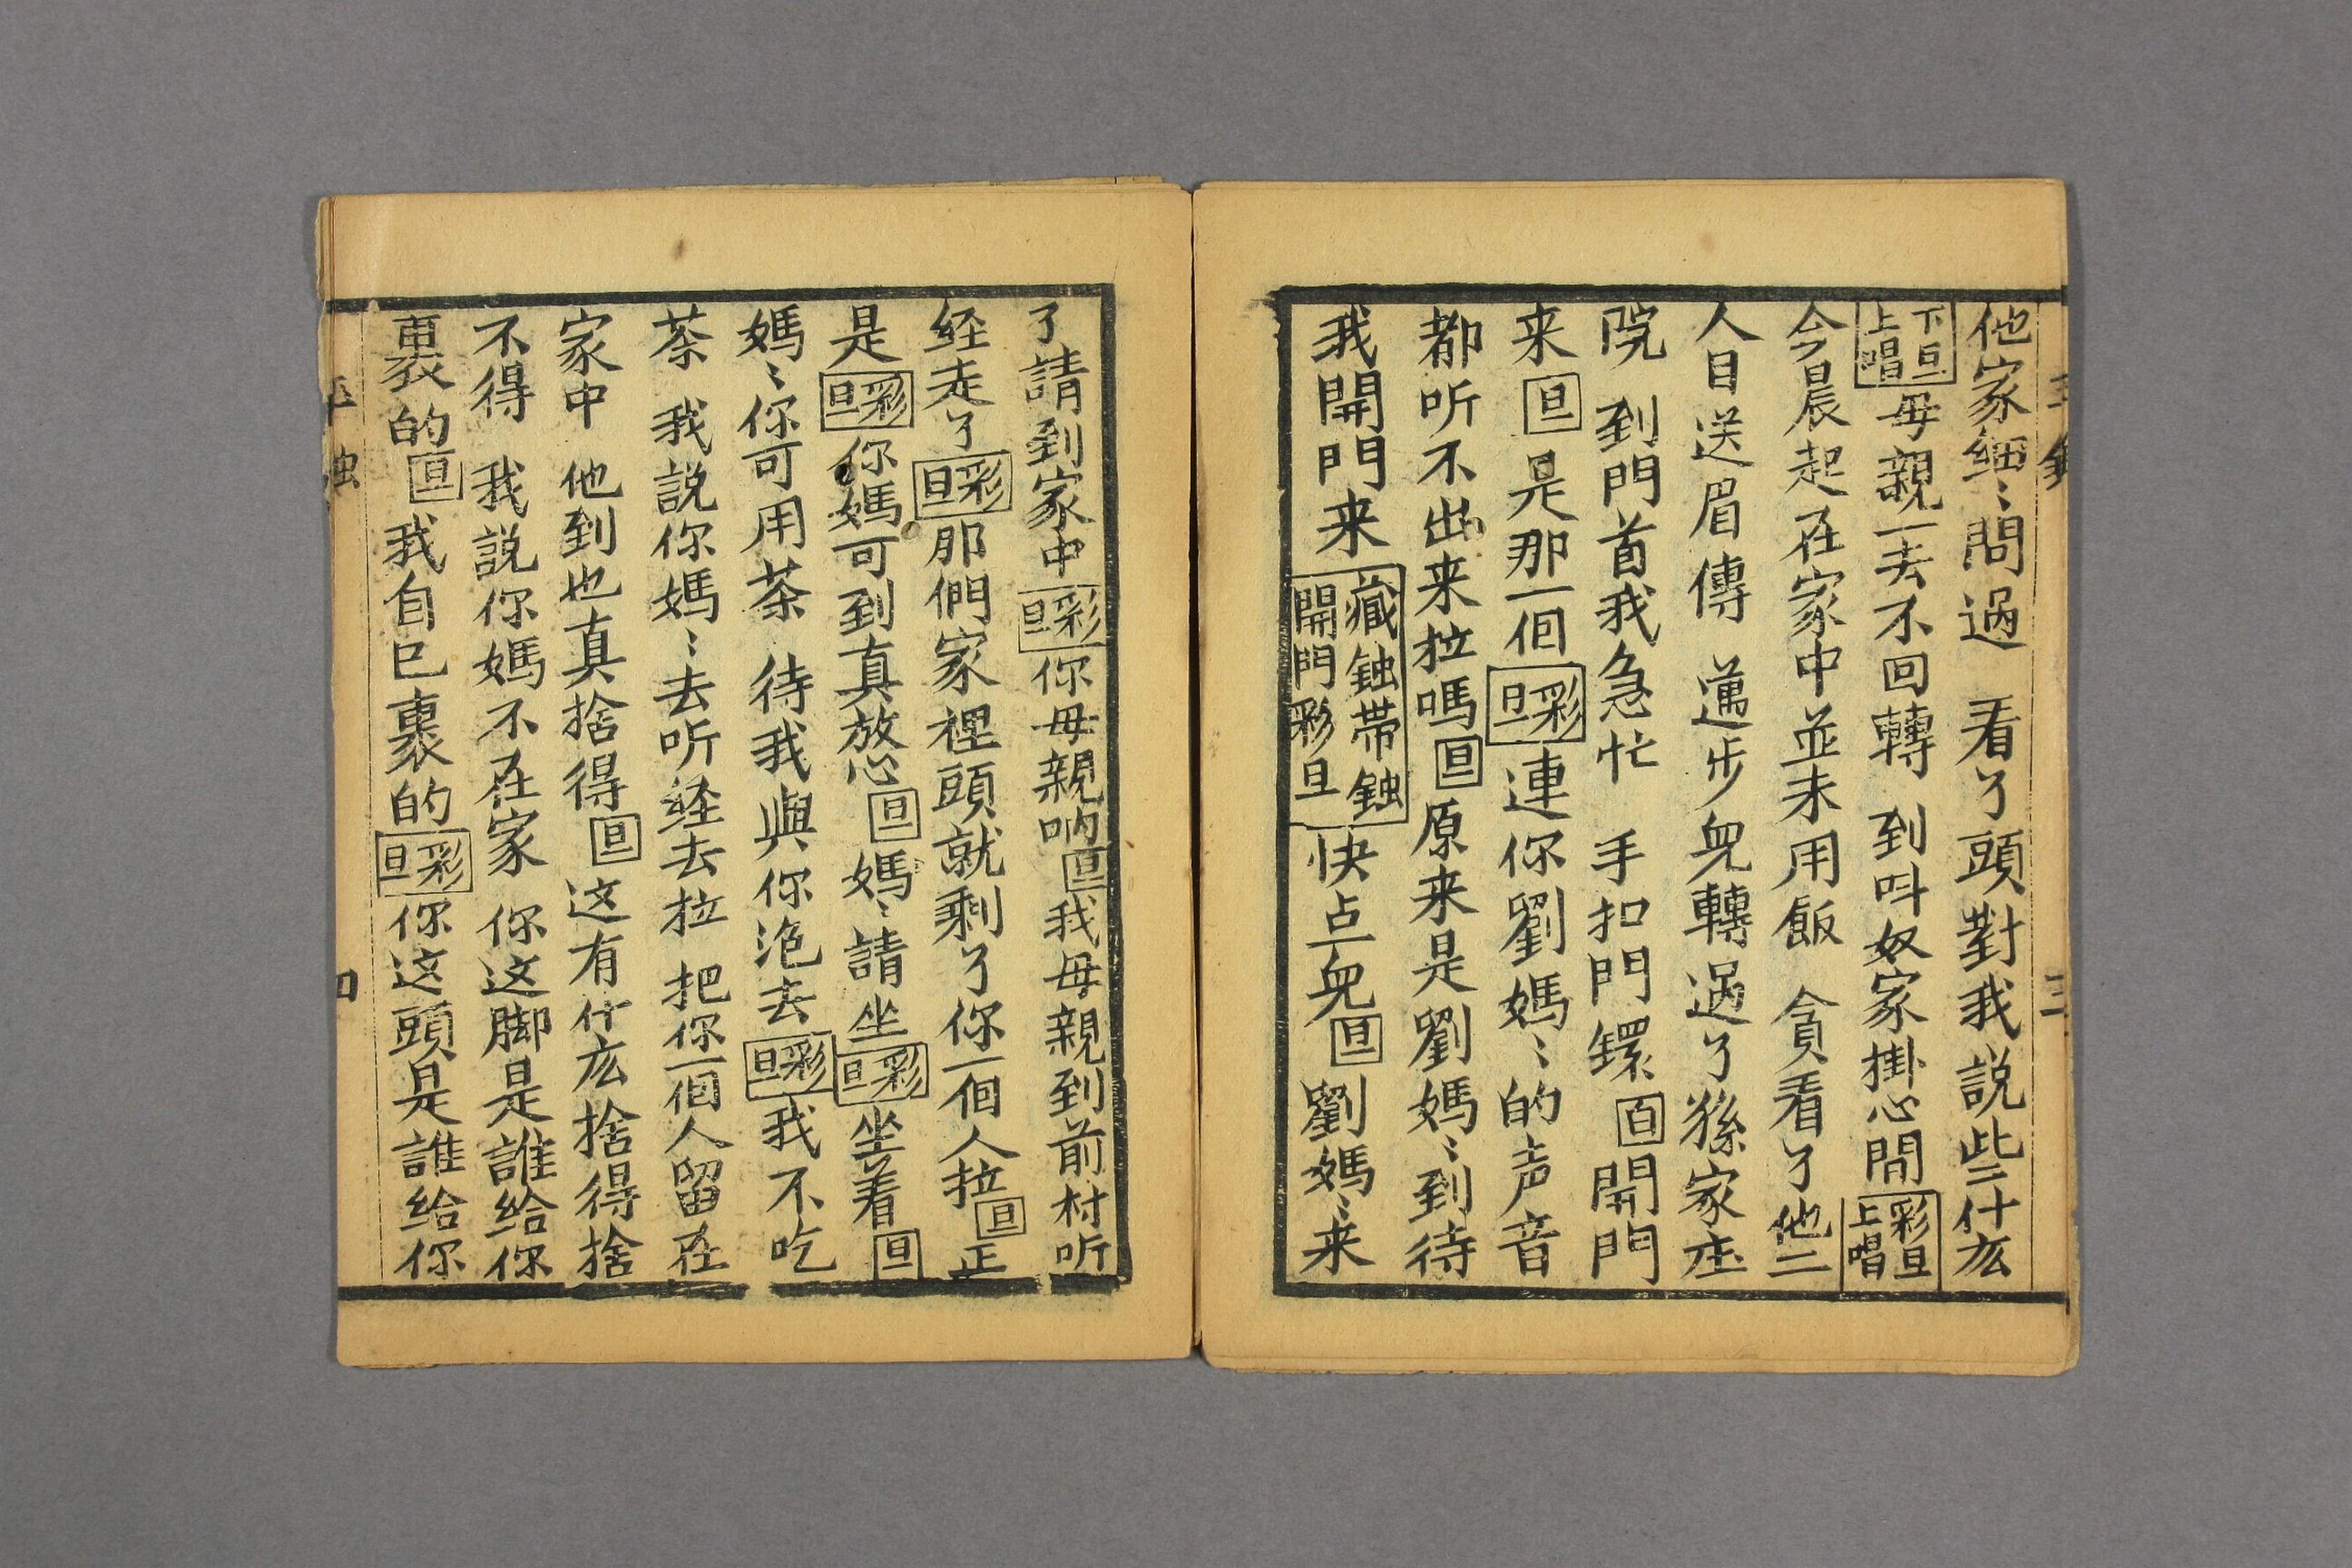 他家細〻問過 看了頭對我説些什広
下旦上唱 毋親一去不回轉 到呌奴家掛心間 彩旦上唱
今晨起在家中並未用飯 貪看了他二
人目送眉傳 邁步兒轉過了孫家庄
院 到門首我急忙 手扣門鐶 白 開門
来 旦 是那一個 彩旦 連你劉媽〻的声音
都听不出来拉嗎 旦 原来是劉媽〻到待
我開門来 藏鈠帯鈠開門彩旦 快点兒 旦 劉媽〻来
了請到家中 彩旦 你毋親吶 旦 我毋親到前村听
経走了 彩旦 那們家裡頭就剩了你一個人拉 旦 正
是 彩旦 你媽可到真放心 旦 媽〻請坐 彩旦 坐着 旦
媽〻你可用茶 待我與你泡去 彩旦 我不吃
茶 我説你媽〻去听経去拉 把你一個人留在
家中 他到也真捨得 旦 这有什広捨得捨
不得 我説你媽不在家 你这脚是誰給你
裹的 旦 我自已裹的 彩旦 你这頭是誰給你
四